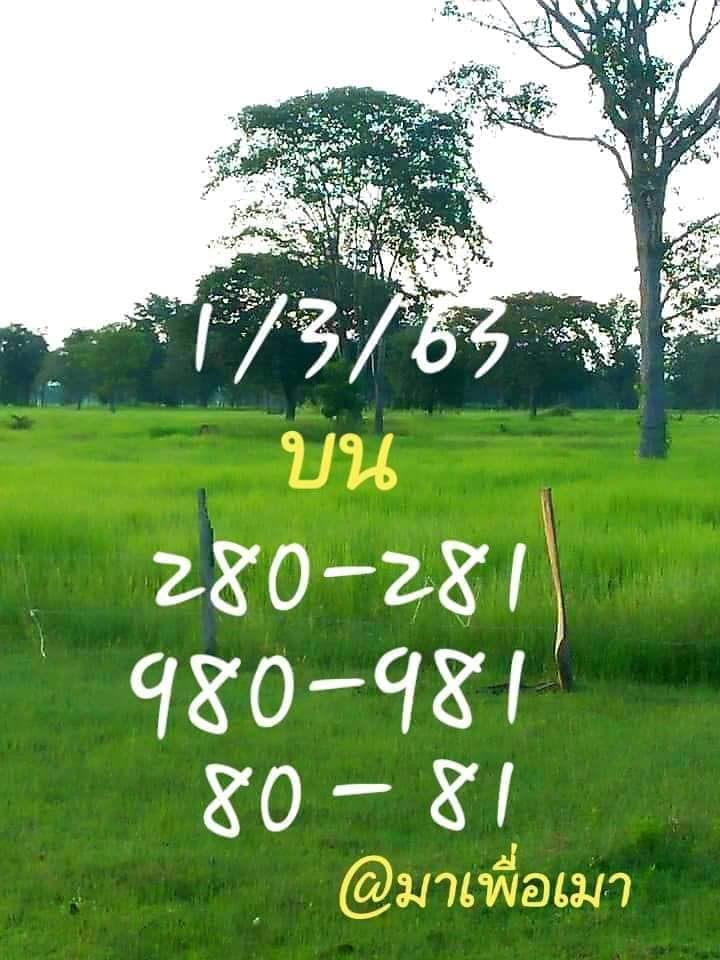 1/3/63
บน
280-281
980-981
80-81
@มาเพื่อเมา